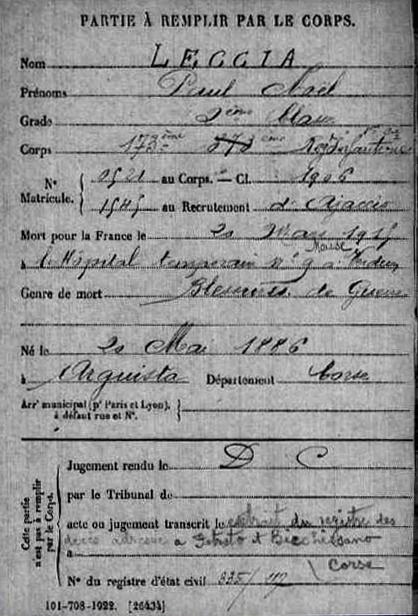 PARTIE À REMPLIR PAR LE CORPS.
Nom LECCIA
Prénoms Paul Noël
Grade 2ème Classe
Corps 173ème Rég d'Infanterie
N° Matricule. au Corps. — Cl. 1906
au Recrutement d'Ajaccio
Mort pour la France le 20 1915
Meuse
à l'Hôpital temporaire N° 9 à Verdun
Genre de mort Blessures de Guerre
Né le 20 Mai 1886
à Département Corse
Arrt municipal (pr Paris et Lyon), à défaut rue et N°.
Cette partie n'est pas à remplir par le Corps.
Jugement rendu le D C
par le Tribunal de
acte ou jugement transcrit le extrait du registre des
décès adressé à et Bicchisano
à Corse
N° du registre d'état civil
101-708-1922. [26434]